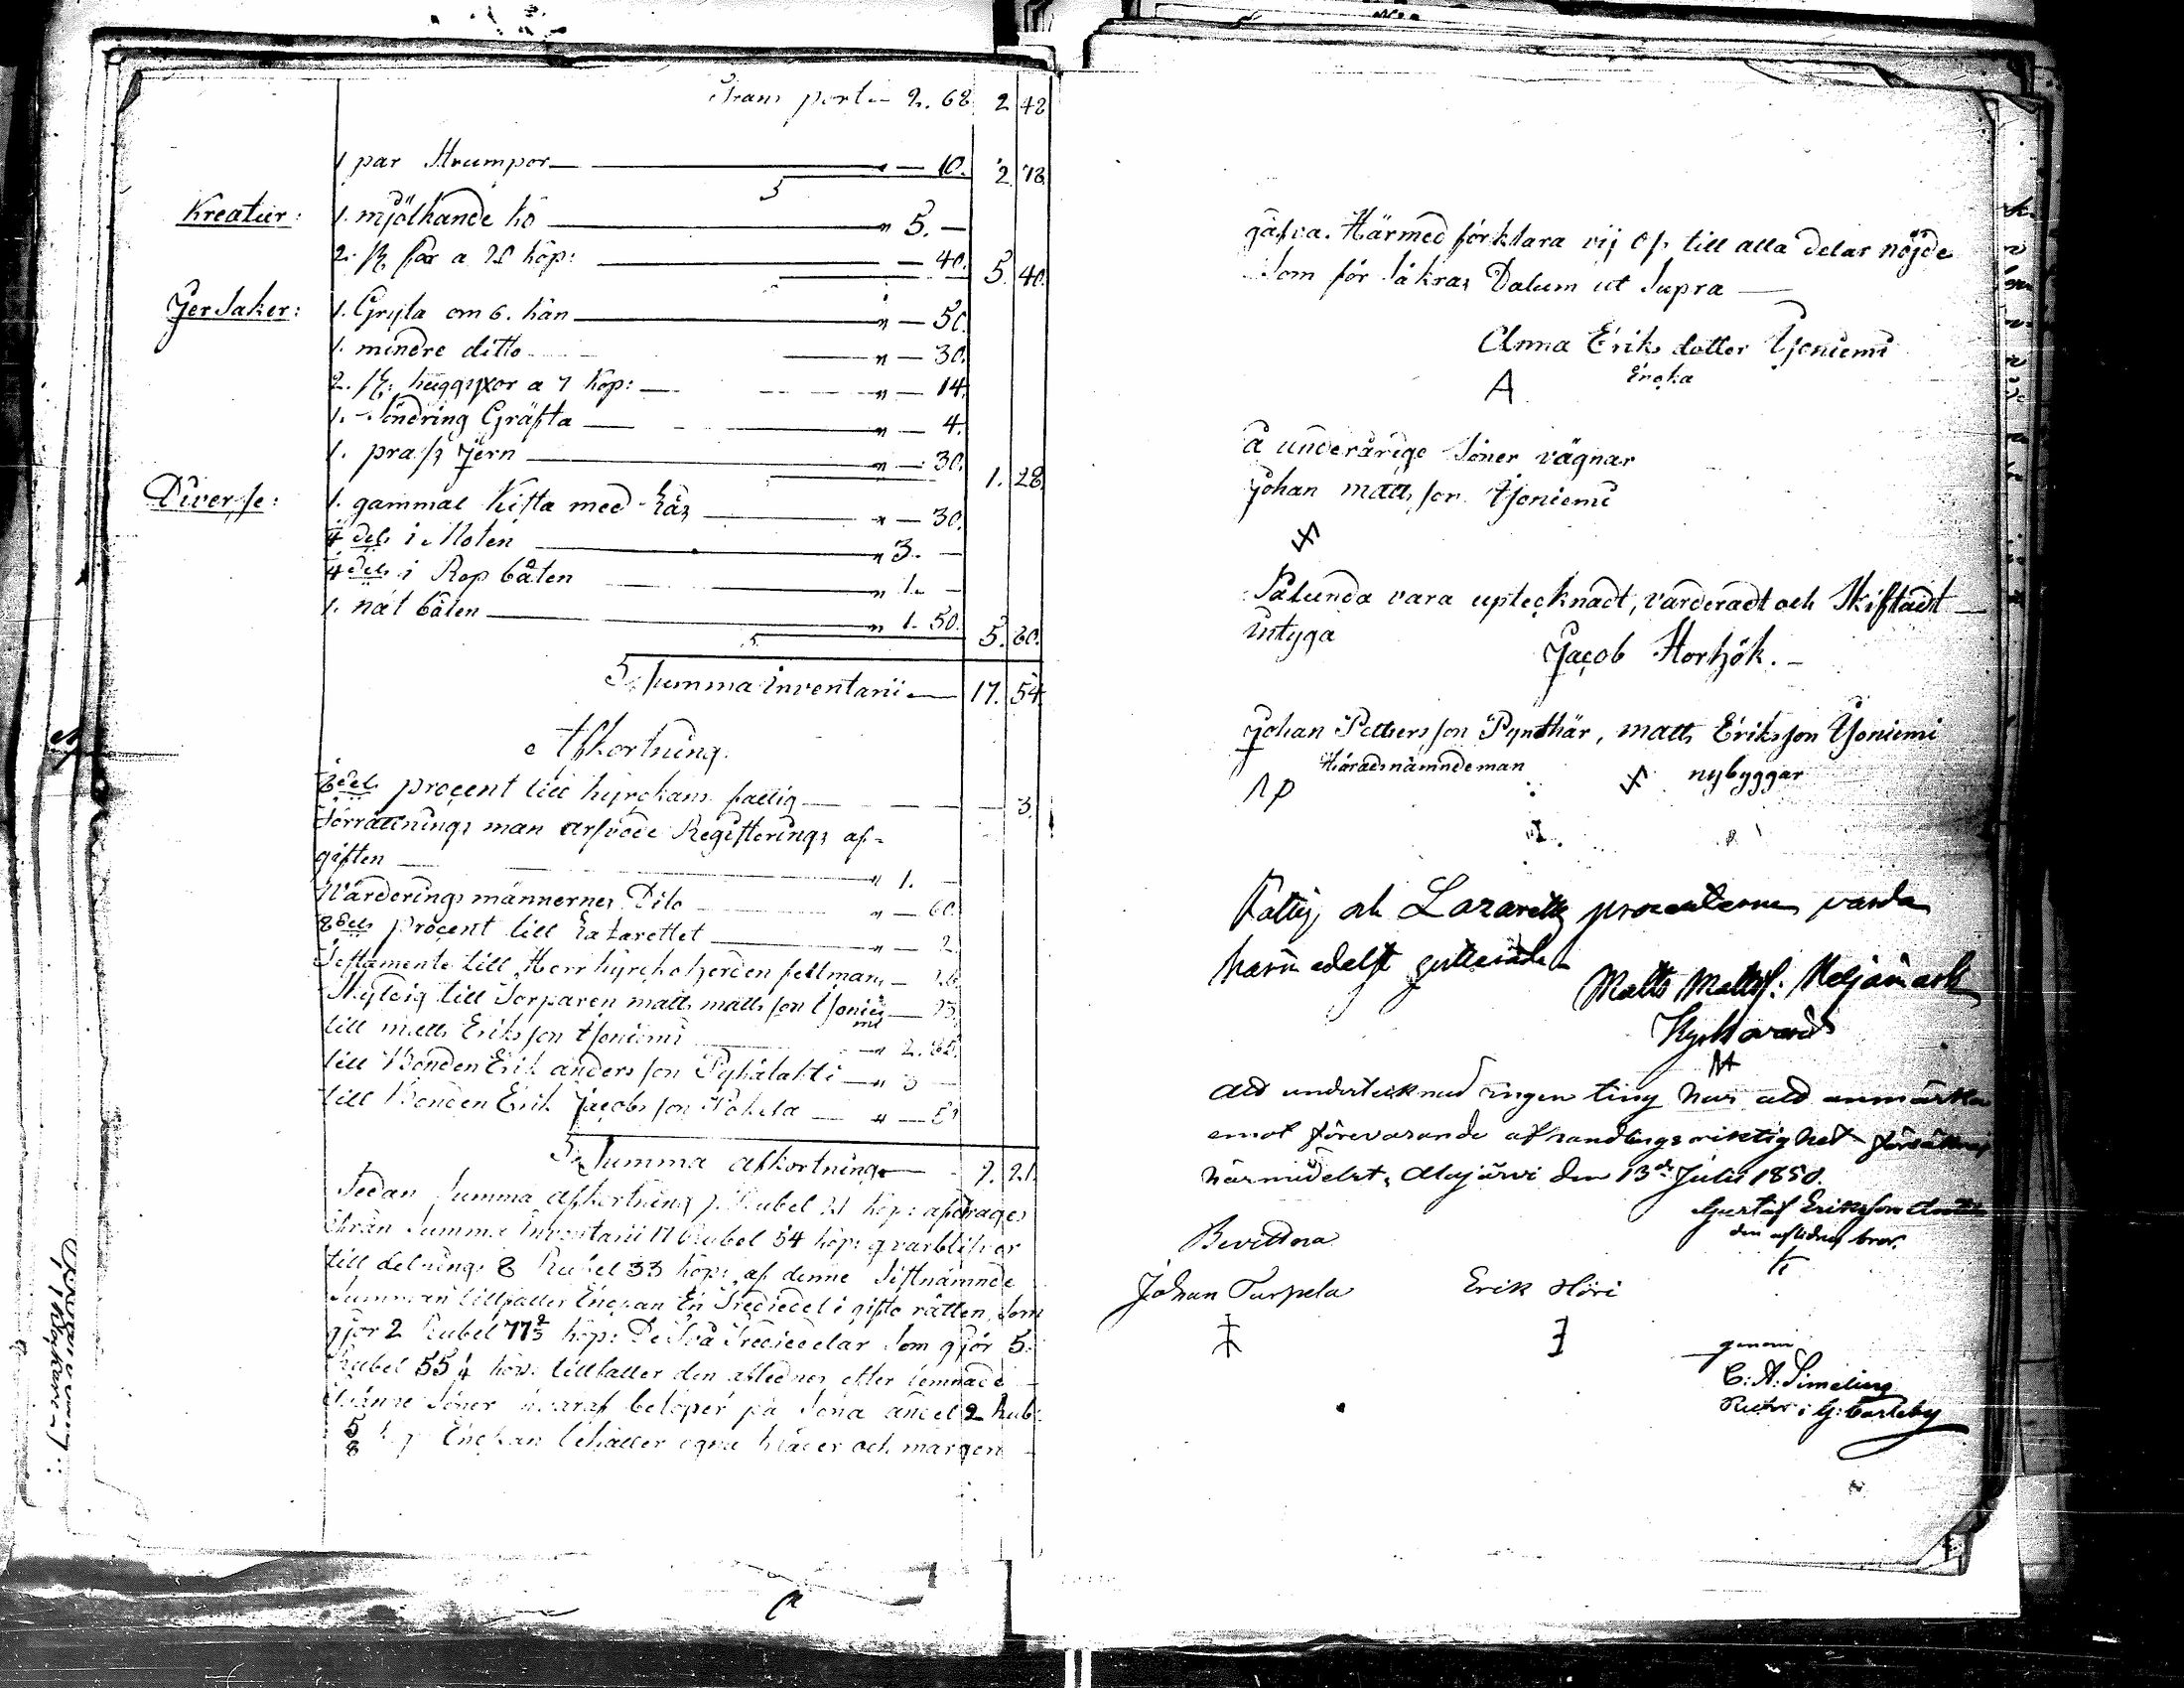 Transport — 2. 68 2 48
1 par Strumpor — " — 10. 2. 78.
Kreatur: 1. mjölkande ko — " 5. —
2. st. får a 20 kop: — 40. 5. 40.
Jersaker: 1. Gryta om 6. kan — " — 50.
1. mindre ditto — " — 30.
2. st. huggyxor a 7 kop: — " — 14.
1. Söndrig Gräfta — " — 4.
1. prass Jern — " — 30. 1. 28.
Diverse: 1. gammal Kista med Lås — " — 30.
4 dels i Noten — " 3. —
4 dels i Rop båten — " 1. —
1. nät båten — " 1. 50. 5. 80.
Summa inventarii — 17. 54.
Afkortning.
8dels procent till kyrckans fattig — 3.
Förrättnings man arfvode Registerings af=
giften — " 1. —
Värderings männernes Dito — " — 60.
8dels procent till Lazarettet — " — 2
Testamente till Herr kyrckoherden fellman —
Skyldig till Torparen matts mattsson Yoniemi —
till matts Eriksson Yoniemi — " 2. 85.
till Bonden Erik andersson Pyhälahti — " 3 —
till Bonden Erik Jacobsson — " —
Summa afkortning — 9. 21.
Sedan Summa afkortning 9. Rubel 21 kop: afdrages
ifrån Summa Inventarii 17 Rubel 54 kop: qvarblifver
till delning: 8 Rubel 33 kop: af denne Sistnämnde
Summan tillfaller Enckan En Trediedel i gifto rätten, Som
gjör 2 Rubel 77 2/3 kop: De två Trediedelar Som gjör 5.
Rubel 55 1/4 kop: tillfaller den aflednes efter lemnade
Söner hvaraf belöper på Sona andel 2 Rub:
5/8 kop Enckan behåller egna kläder och margon
gåfva. Härmed förklara vij Oss till alla delar nöjde
Som försäkras Datum ut Supra —
Anna Eriks dotter Yoniemi
Encka
A
å underårige Söner vägnar
Johan matts son Yoniemi
Sålunda vara upteçknadt, värderadt och Skiftadt —
intyga
Jacob Storhök. —
Johan Pettersson Pynthär, matts Eriksson Yoniemi
Häradsnämndeman nybyggar
Fattig och Lazaretts procenterne varda
härmedelst qvitterade
Matts Matts: Heljämark
Kyrkovärd
Att undertecknad ingen ting har att anmärka
emot förevarande afhandlings riktighet försäkras
härmedelst, Alajärvi den 13de Julii 1850.
Gustaf Eriksson
den aflidnes bror.
Bevittna
Johan Turpela Erik Höri
genom
C: A: Simelius
i G: Carleby